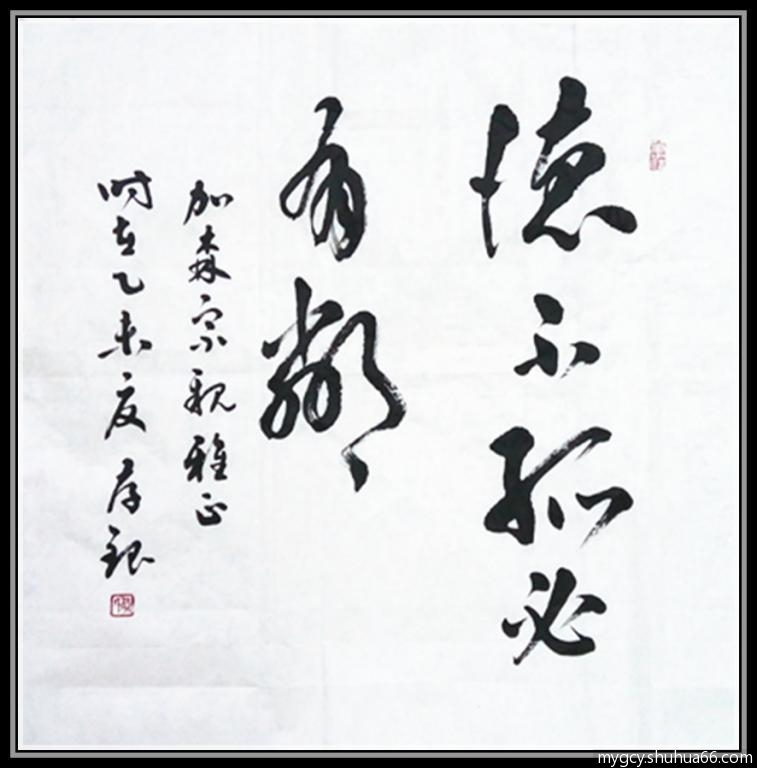 德不孤必
有鄰
加森宗親雅正
时在乙未夏 存銀
mygcy.shuhua66.com